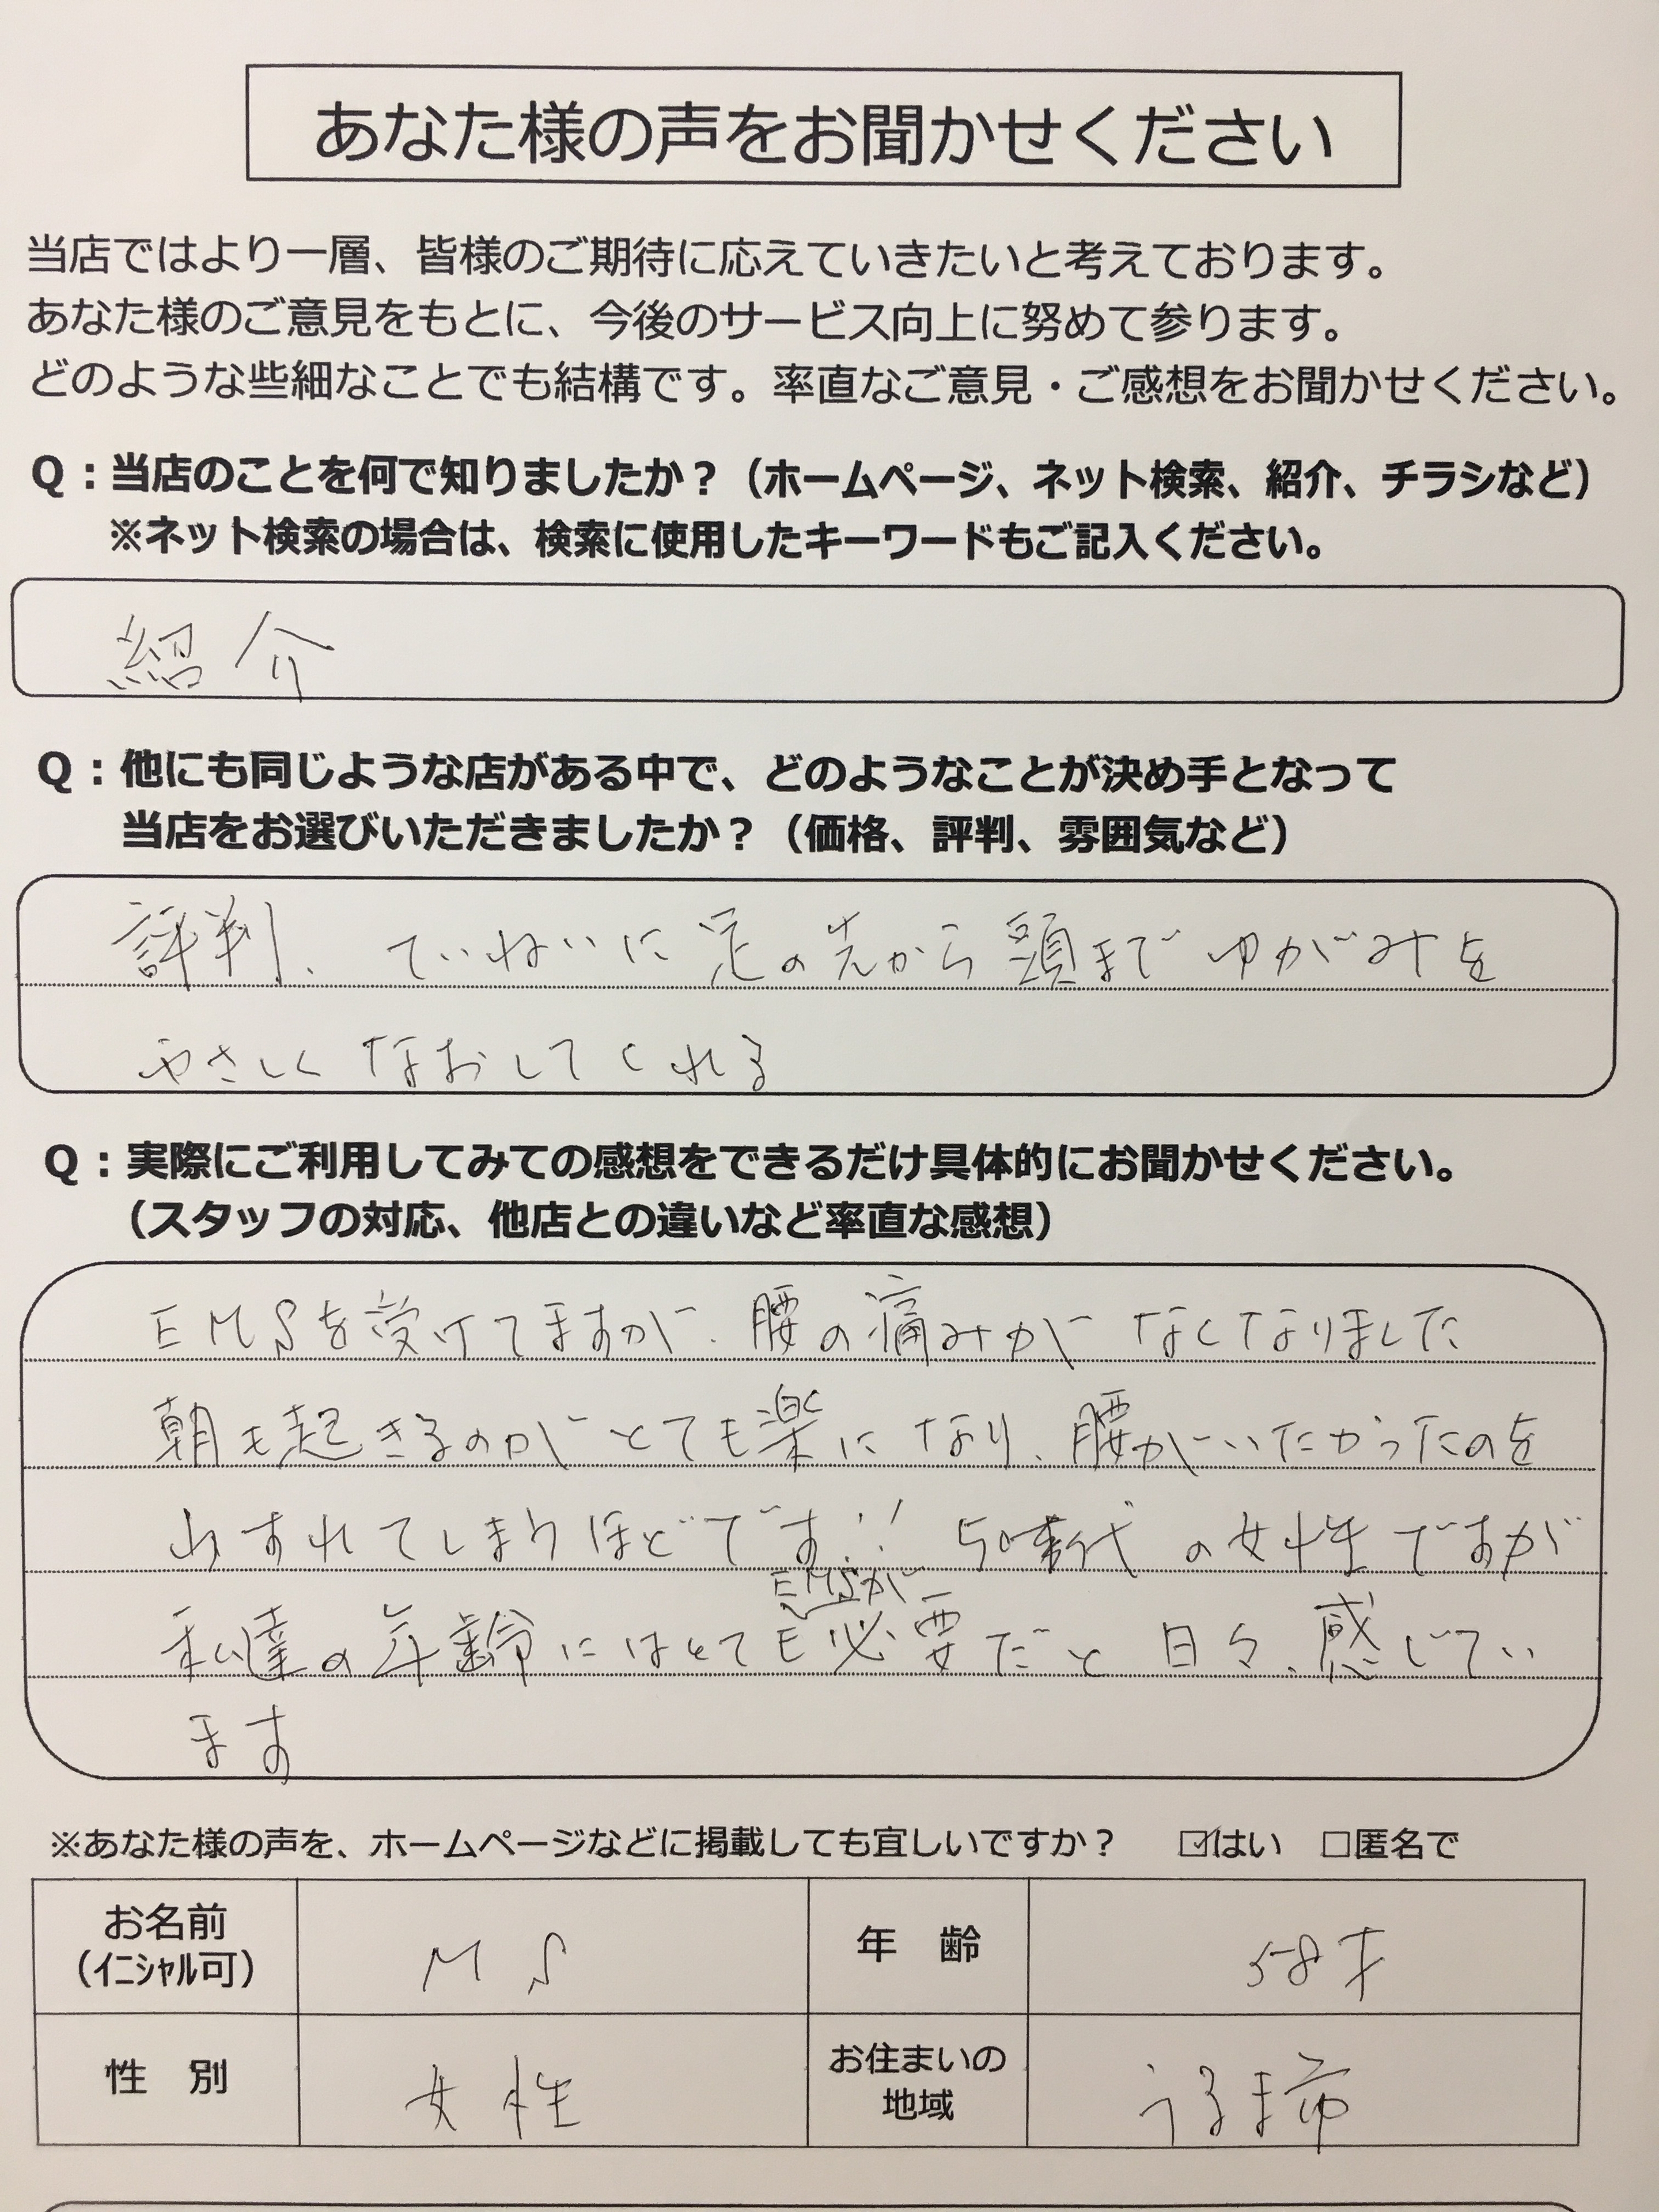 あなた様の声をお聞かせください
当店ではより一層、皆様のご期待に応えていきたいと考えております。
あなた様のご意見をもとに、今後のサービス向上に努めて参ります。
どのような些細なことでも結構です。率直なご意見・ご感想をお聞かせください。
Q：当店のことを何で知りましたか？（ホームページ、ネット検索、紹介、チラシなど）
※ネット検索の場合は、検索に使用したキーワードもご記入ください。
紹介
Q：他にも同じような店がある中で、どのようなことが決め手となって
当店をお選びいただきましたか？（価格、評判、雰囲気など）
評判、ていねいに足の先から頭までゆがみを
やさしくなおしてくれる
Q：実際にご利用してみての感想をできるだけ具体的にお聞かせください。
（スタッフの対応、他店との違いなど率直な感想）
EMSを受けてますが、腰の痛みがなくなりました
朝も起きるのがとても楽になり、腰がいたかったのを
わすれてしまうほどです!! 50代の女性ですが
EMSが
私達の年齢にはとても必要だと日々、感じてい
ます
※あなた様の声を、ホームページなどに掲載しても宜しいですか？ ☑はい □匿名で
お名前 M S 年 齢 58才
（イニシャル可）
性 別 女性 お住まいの うるま市
地域